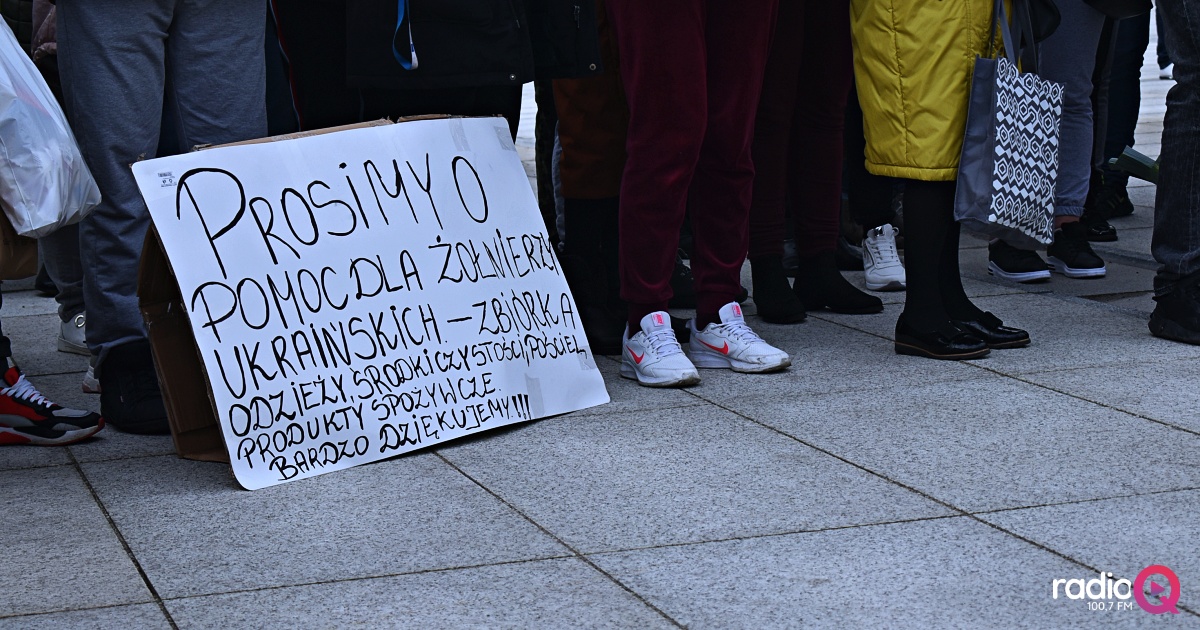 PROSIMY O
POMOC DLA ŻOŁNIERZY
UKRAIŃSKICH. – ZBIÓRKA
ODZIEŻY, ŚRODKI CZYSTOŚCI, POŚCIEL,
PRODUKTY SPOŻYWCZE.
BARDZO DZIĘKUJEMY!!!
radio Q
100.7 FM